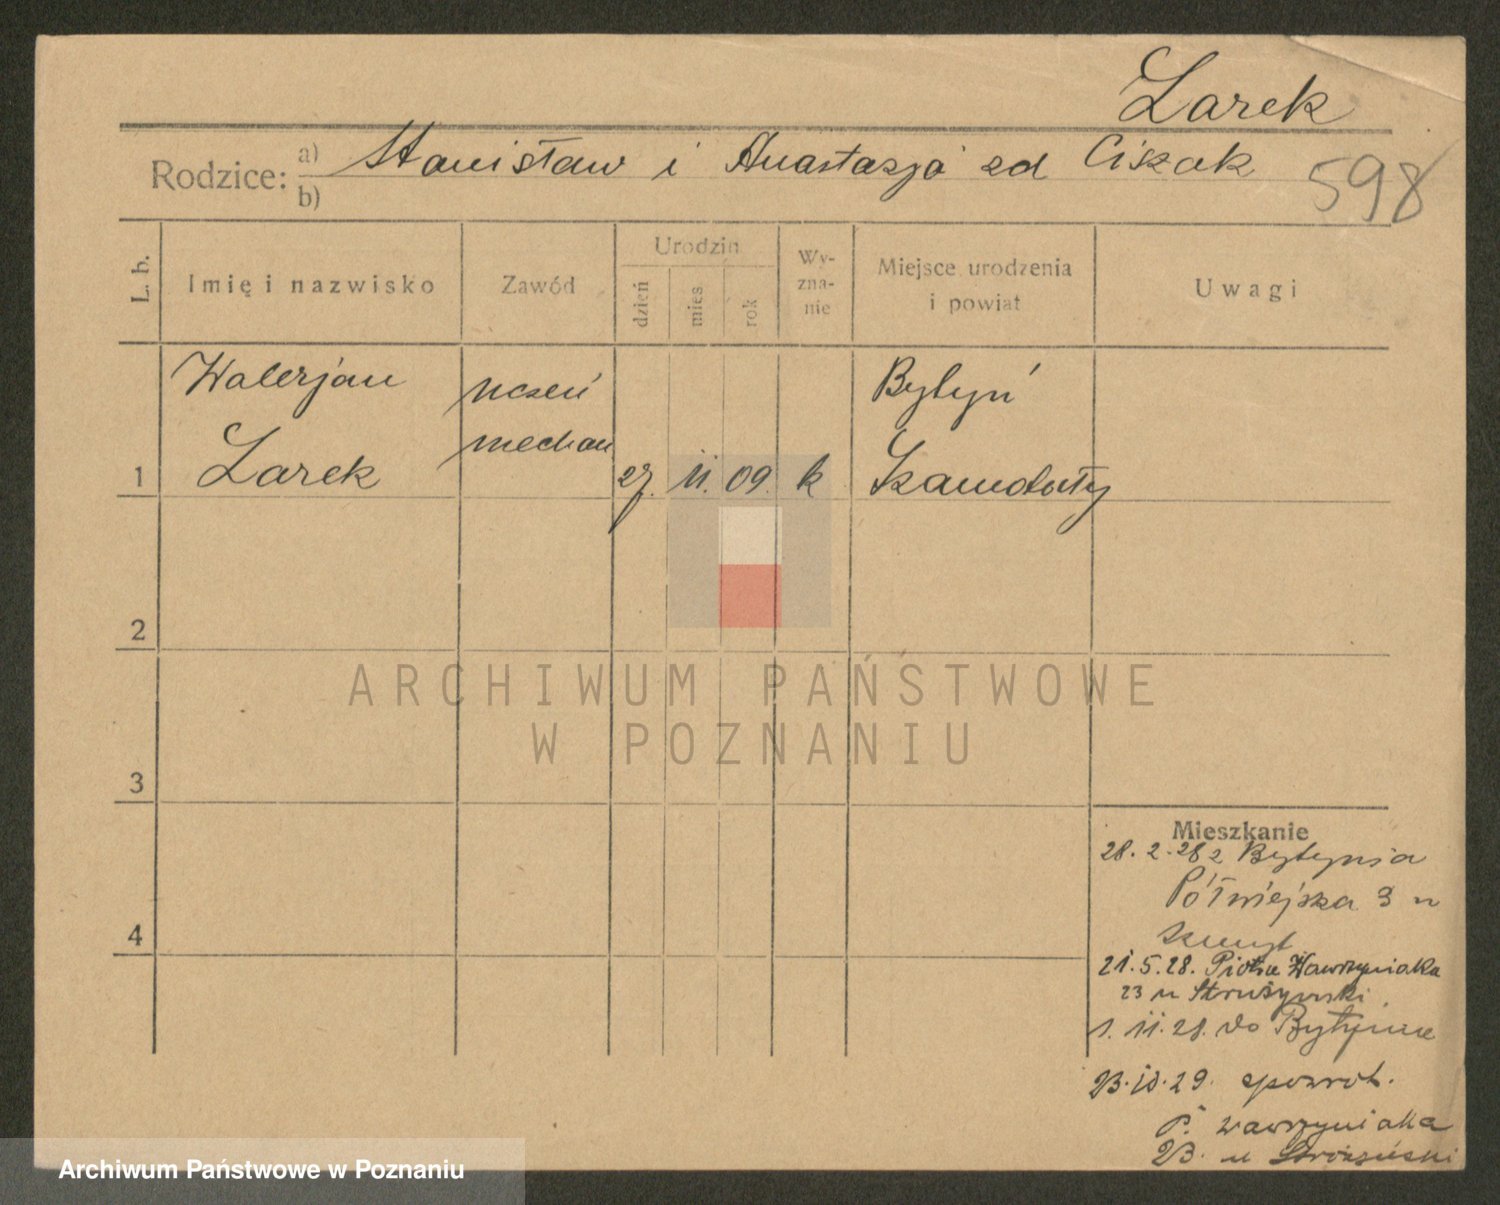 Larek
Rodzice: a) Stanisław i Anastazja zd Ciszak
b)
598
L. b.
Imię i nazwisko
Zawód
Urodzin
dzień
mies
rok
Wy-
zna-
nie
Miejsce urodzenia
i powiat
Uwagi
Walerjan uczeń Bytyń
mechan
1 Larek 27. 11. 09. k Szamotuły
2
ARCHIWUM PAŃSTWOWE
W POZNANIU
3
Mieszkanie
28. 2. 28 z Bytynia
Półwiejska 3 u
4
21. 5. 28. Piotra Wawrzyniaka
23 u
1. 11. 28. do Bytynia
29. spowrot.
P. Wawrzyniaka
23. u
Archiwum Państwowe w Poznaniu